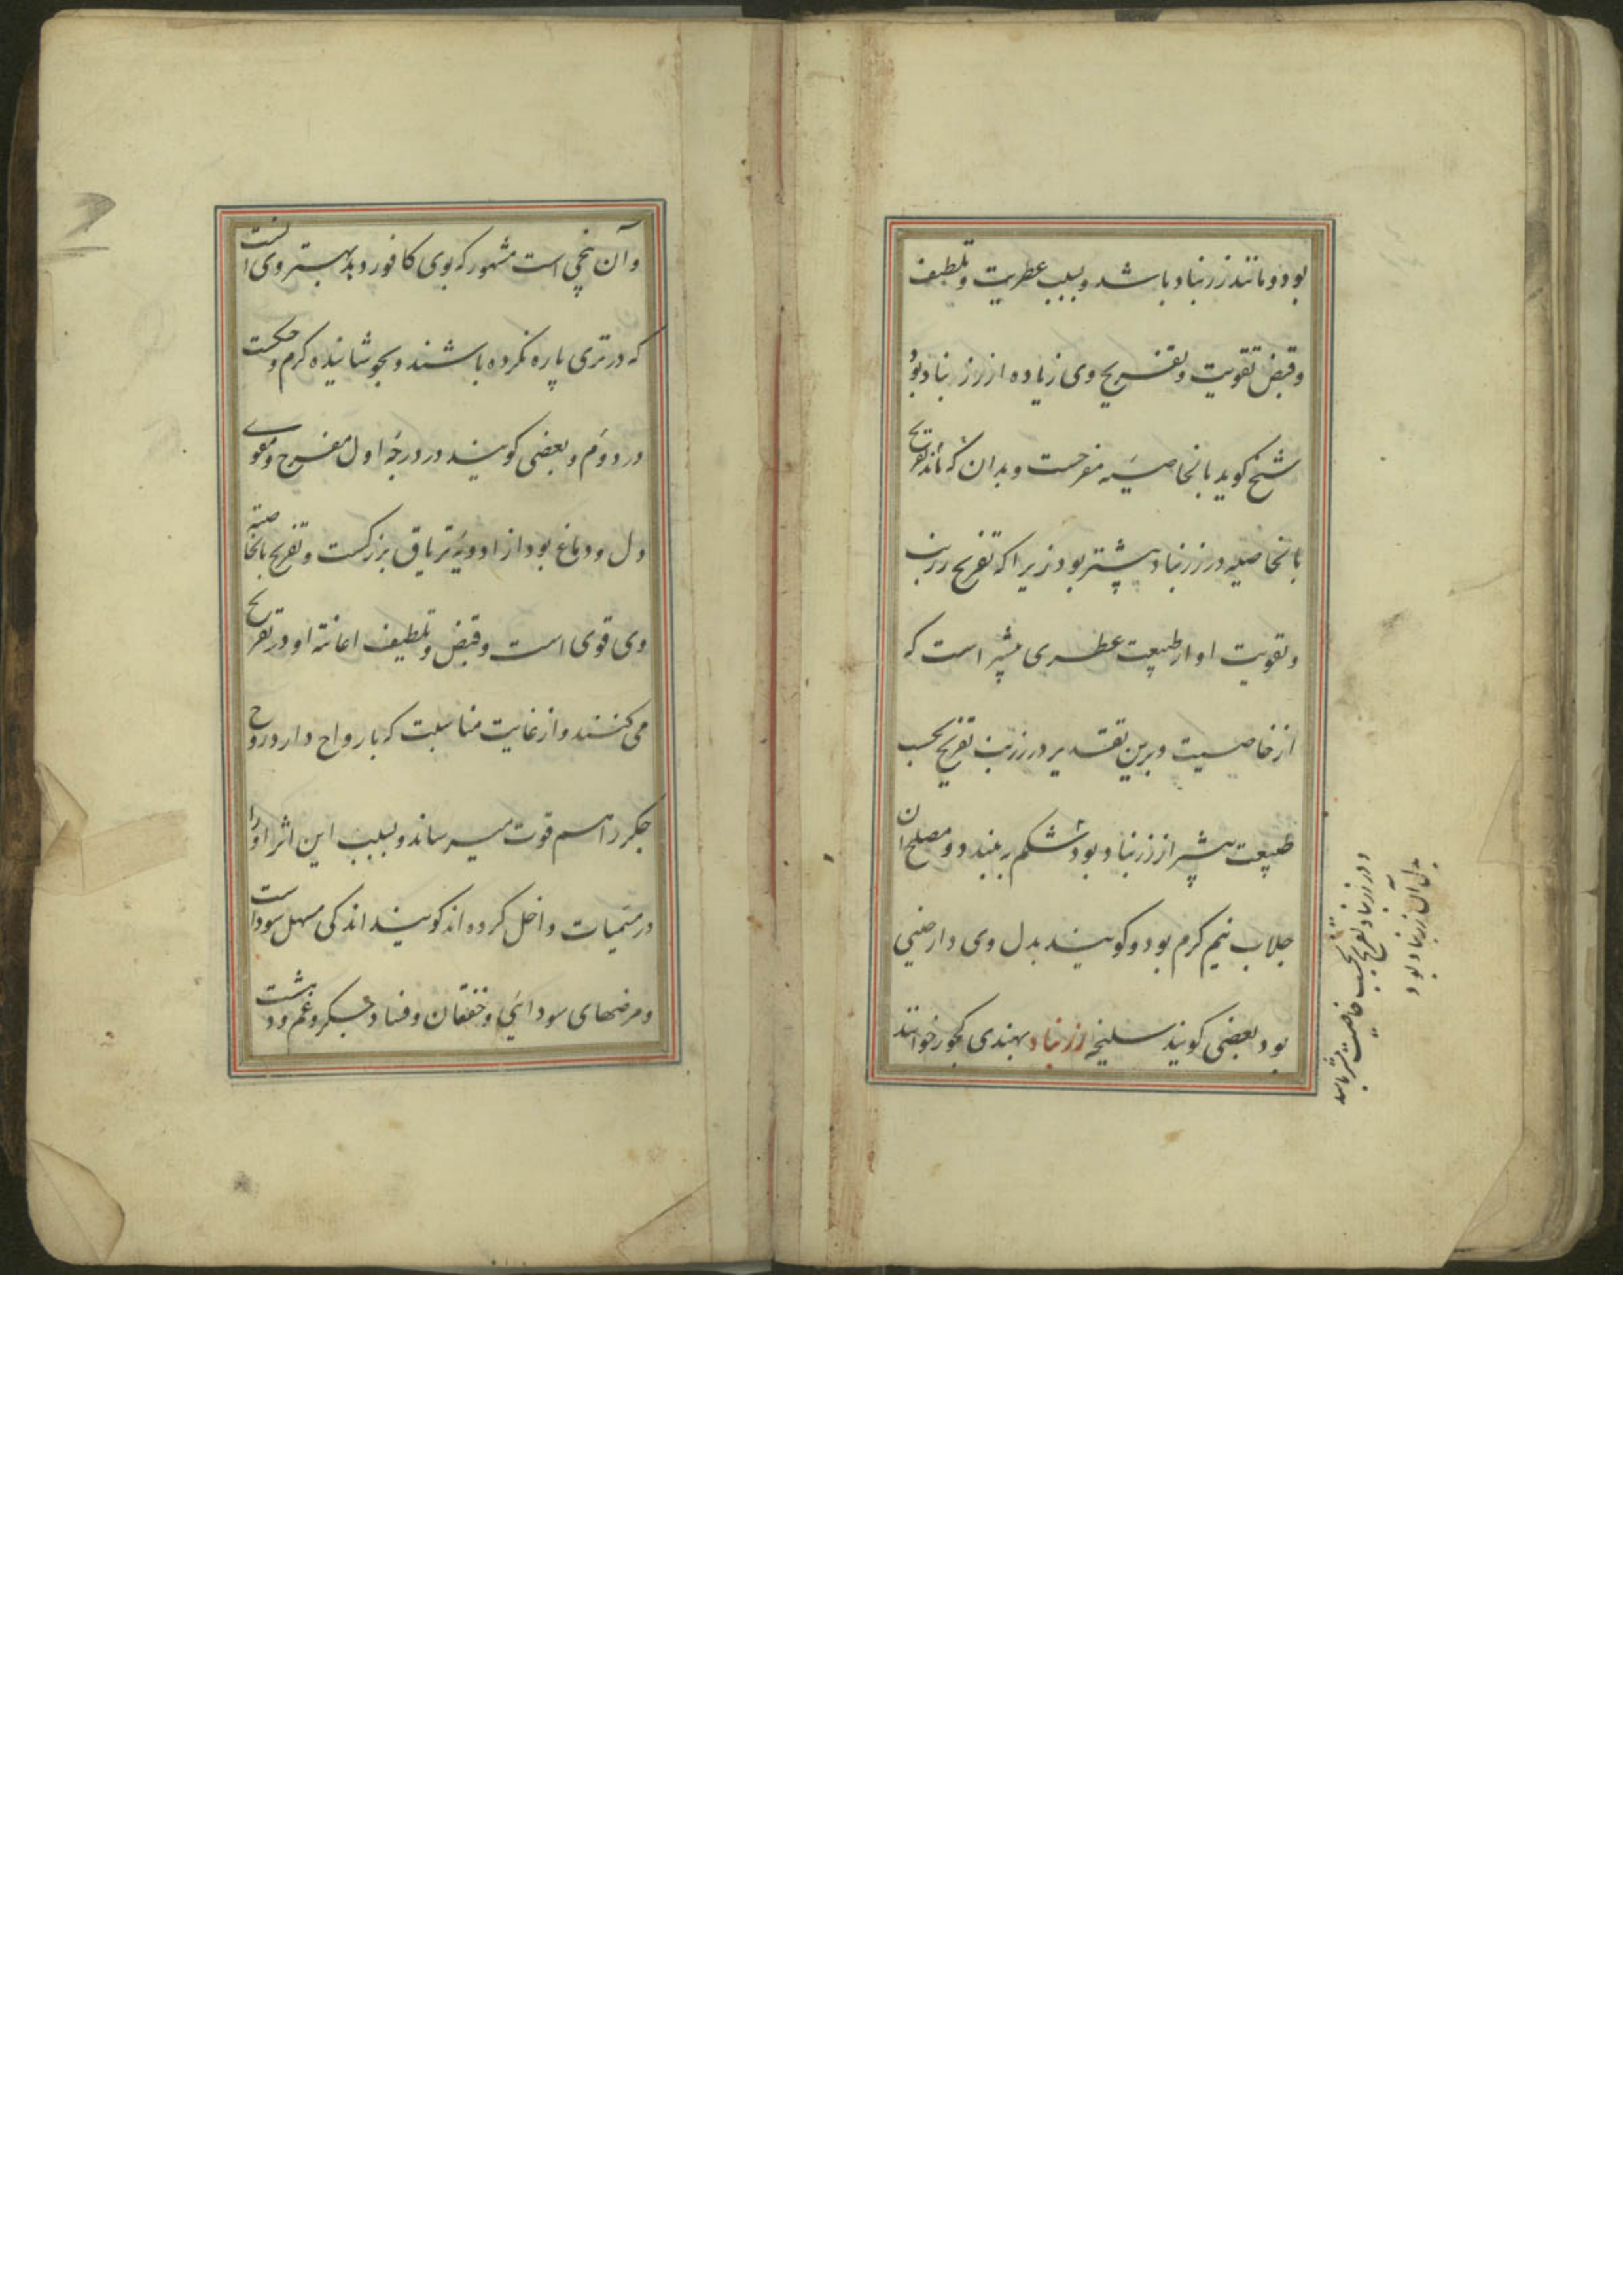 بود و مانند زرنباد باشد و بسبب عطریت و تلطیف
و قبض تقویت و تفریح وی زیاده از زرنباد بود
شیخ کوید بالخاصیه مفرحست و بدان که مانند تفریح
بالخاصیه در زرنباد بیشتر بود زیرا که تفریح زرنب
و تقویت او از طبیعت عطری بیشتر است که
از خاصیت و برین تقدیر در زرنب تفریح بحسب
طبیعت بیشتر از زرنباد بود شکم به بندد و مصلح ان
جلاب نیم کرم بود و کویند بدل وی دارچینی
بود بعضی کویند سلیخه زرنباد بهندی کچور خوانند
و در زرنباد تفریح بحسب خاصیت بیشتر باشد
بدل آن زرنباد بود
و آن بیخی است مشهور که بوی کافور دهد بهترین وی انست
که در تری پاره نکرده باشند و بجوشانیده کرم و خشکست
در دوم و بعضی کویند در درجهٔ اول مفرح و مقوی
دل و دماغ بود از ادویهٔ تریاق بزرکست و تفریح بالخاصیة
وی قوی است و قبض و تلطیف اعانة او در تفریح
می کنند و از غایت مناسبت که بارواح دارد روح
جکر را هم قوت میرساند و بسبب این اثر او را
در سمیات داخل کرده اند کویند اندکی مسهل سوداست
و مرضهای سودائی و خفقان و فساد جکر و غم و وحشت